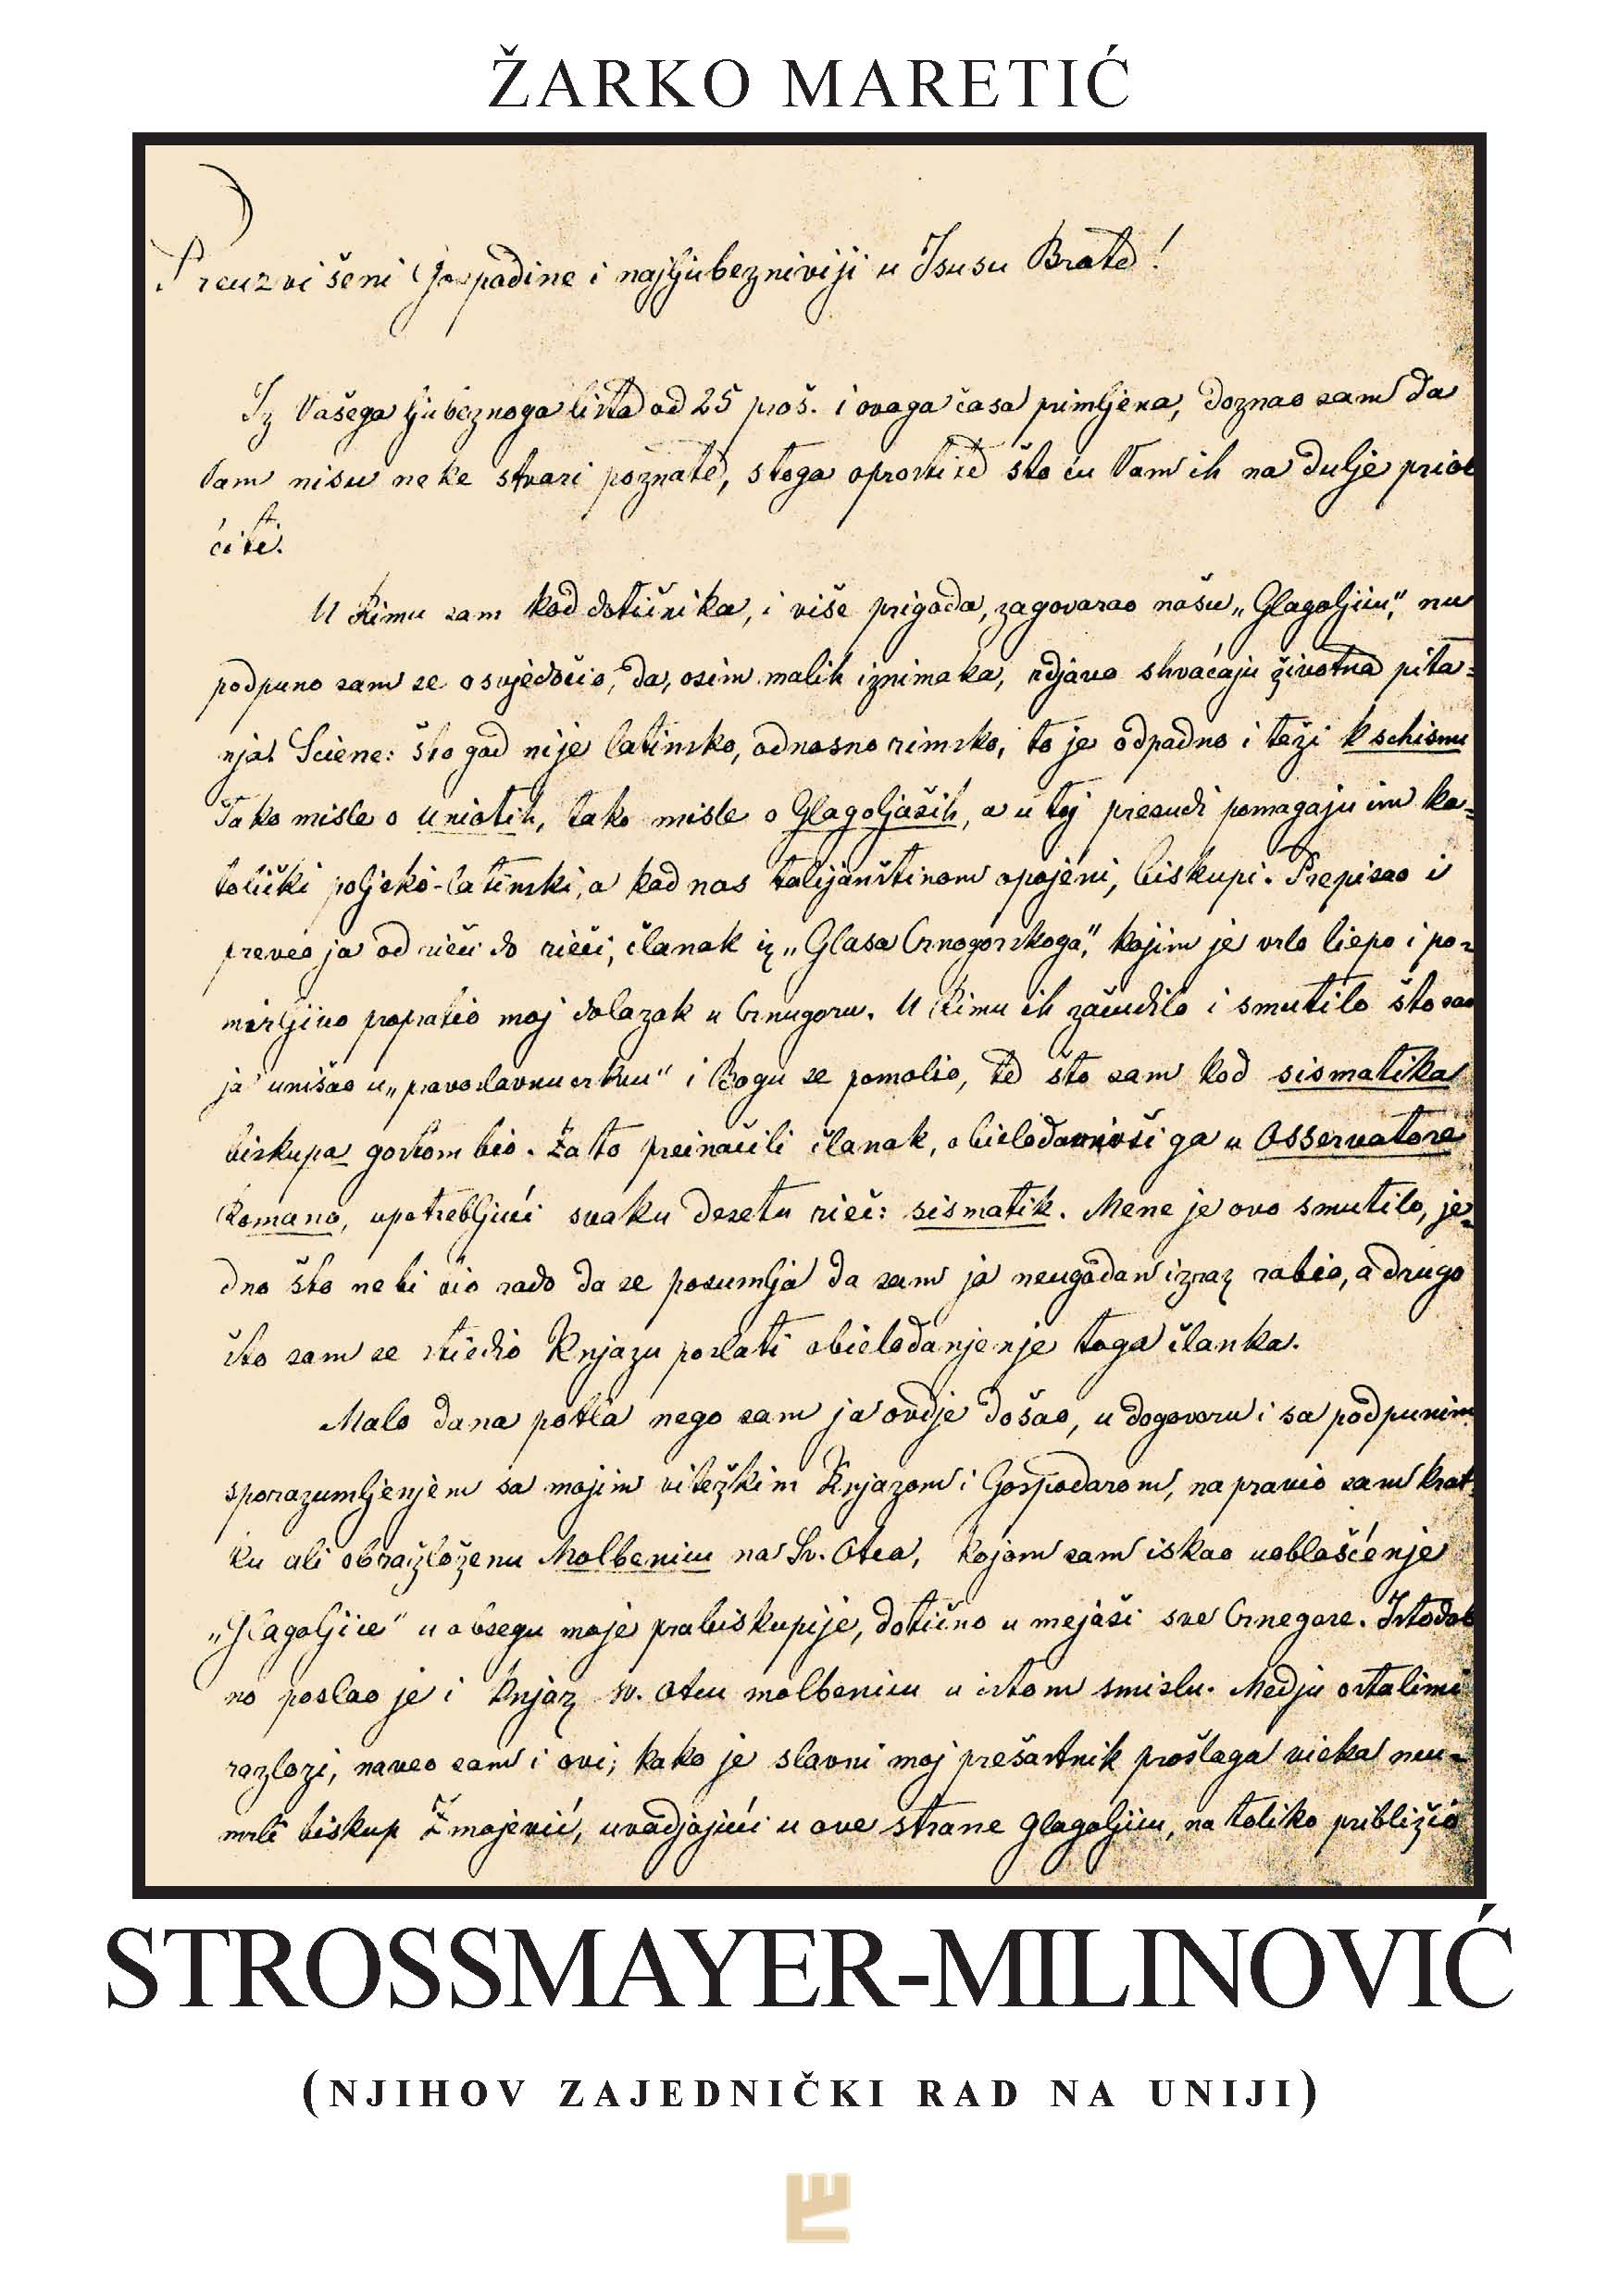 ŽARKO MARETIĆ
Preuzvišeni Gospodine i najljubezniviji u Isusu Brate!
Iz Vašega ljubeznoga lista od 25 proš. i ovaga časa primljena, doznao sam da
Vam nisu neke stvari poznate, stoga oprostite što ću Vam ih na dulje priob
ćiti.
U Rimu sam kod dotičnika, i više prigoda, zagovarao našu „Glagoljicu", nu
podpuno sam se osvjedočio, da, osim malih iznimaka, rdjavo shvaćaju životna pita-
nja! Sciene: što god nije latinsko, odnosno rimsko, to je odpadno i teži k schismi
Tako misle o uniatih, tako misle o Glagoljaših, a u toj presudi pomagaju im ka-
tolički poljsko-latinski, a kad nas talijanštinom opojeni, biskupi. Prepisao i
preveo ja od rieči do rieči, članak iz „Glasa Crnogorskoga", kojim je vrlo liepo i po-
mirljivo popratio moj dolazak u Crnugoru. U Rimu ih začudilo i smutilo što sam
ja unišao u „pravoslavnu crkvu" i Bogu se pomolio, te što sam kod sismatika
biskupa gostom bio. Zato preinačili članak, obielodanivši ga u Osservatore
Romano, upotrebljući svaku desetu rieč: sismatik. Mene je ovo smutilo, je-
dno što ne bi bio rado da se posumlja da sam ja neugodan izraz rabio, a drugo
što sam se stiedio Knjazu poslati obielodanjenje toga članka.
Malo dana potla nego sam ja ovdje došao, u dogovoru i sa podpunim
sporazumljenjem sa mojim viteškim Knjazom i Gospodarom, napravio sam krat-
ku ali obrazloženu Molbenicu na Sv. Otca, kojom sam iskao uoblašćenje
„Glagoljice" u obsegu moje prabiskupije, dotično u mejaši sve Crnegore. Istodob
no poslao je i Knjaz sv. Otcu molbenicu u istom smislu. Medju ostalimi
razlozi, naveo sam i ovi; kako je slavni moj prešastnik prošlaga vieka neu-
mrli biskup Zmajević, uvadjajući u ove strane glagoljicu, na toliko približio
STROSSMAYER-MILINOVIĆ
(NJIHOV ZAJEDNIČKI RAD NA UNIJI)